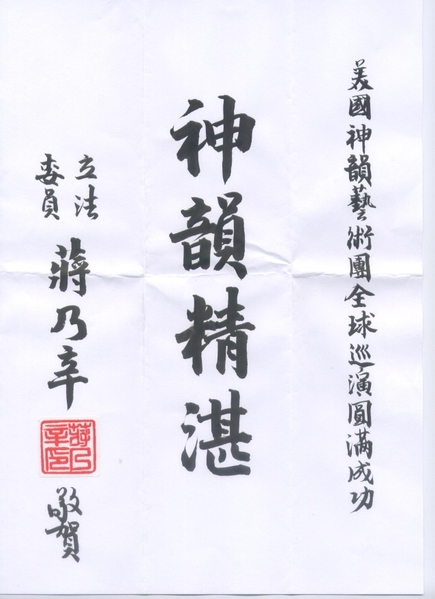 美國神韻藝術團全球巡演圓滿成功
神韻精湛
立法
委員
蔣乃辛
蔣乃
辛印
敬賀